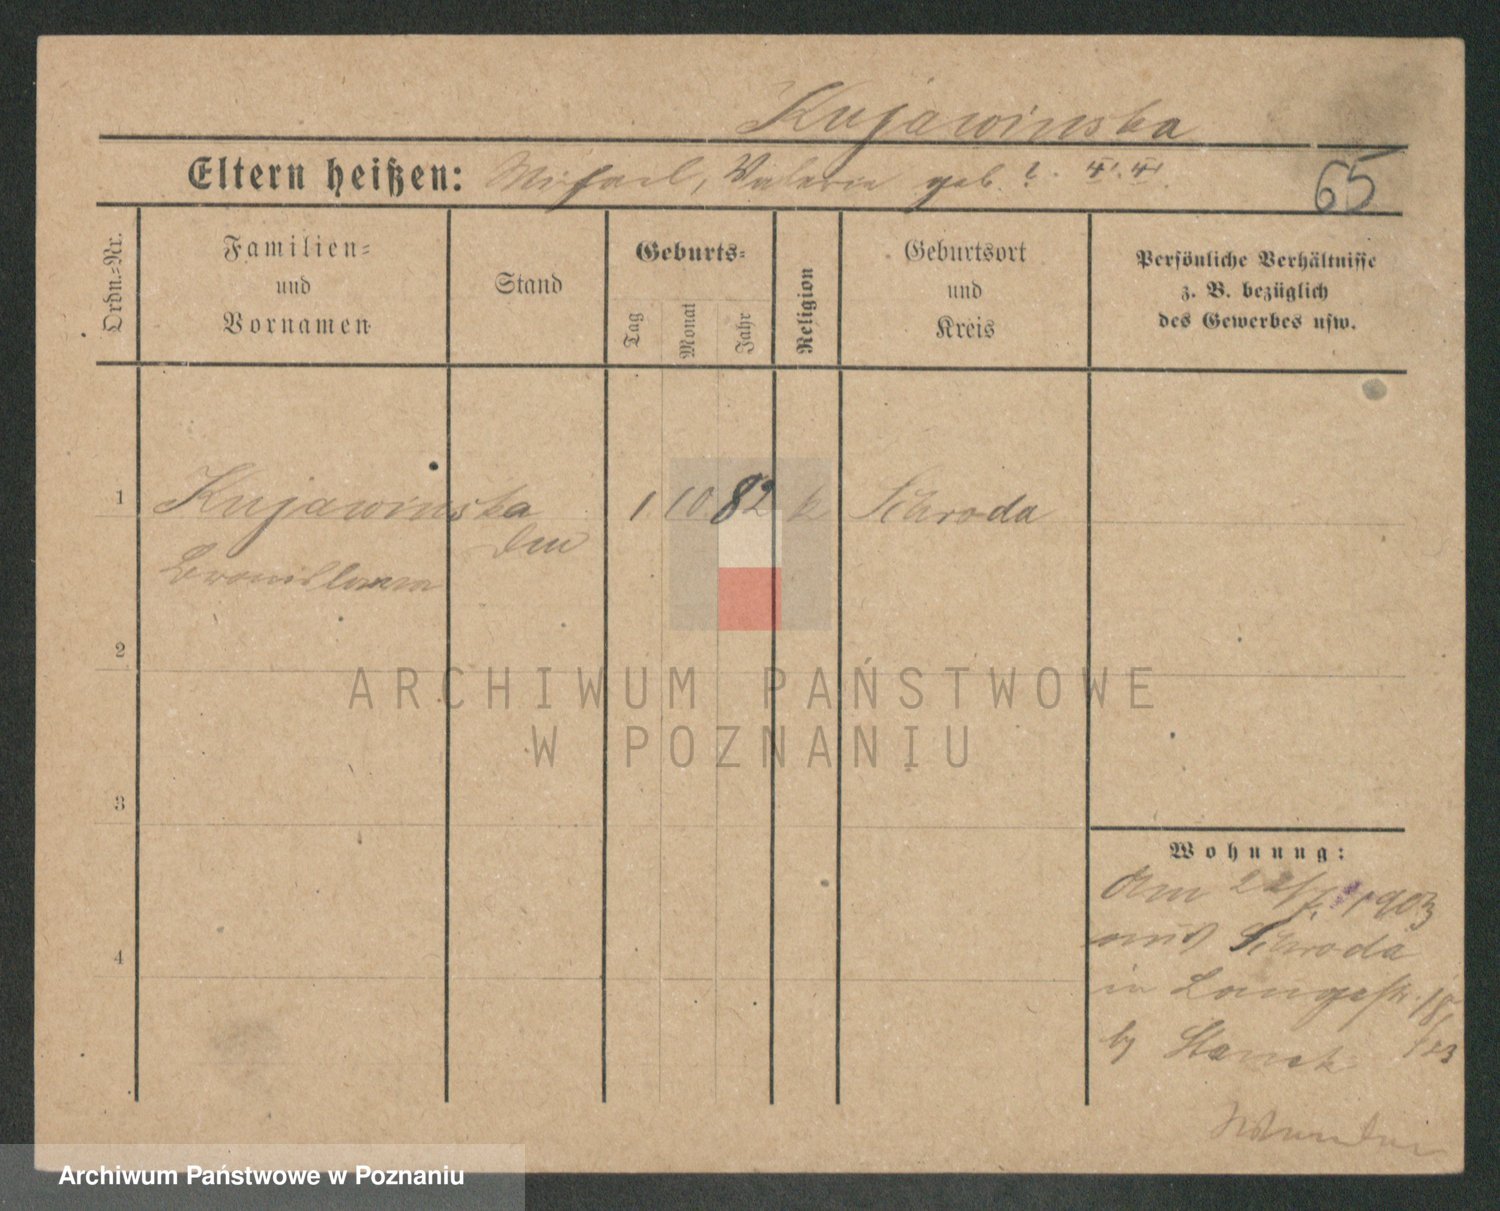 Kujawinska
Eltern heißen: Michael, Valerie geb. ?.
65
Ordn.-Nr.
Familien-
und
Vornamen
Stand
Geburts-
Tag
Monat
Jahr
Religion
Geburtsort
und
Kreis
Persönliche Verhältnisse
z. B. bezüglich
des Gewerbes usw.
1 Kujawinska 1 10 82 k Schroda
Bronislawa
2
3
4
Wohnung:
Am 1903
aus Schroda
in Langestr. 18,
by
ARCHIWUM PAŃSTWOWE
W POZNANIU
Archiwum Państwowe w Poznaniu